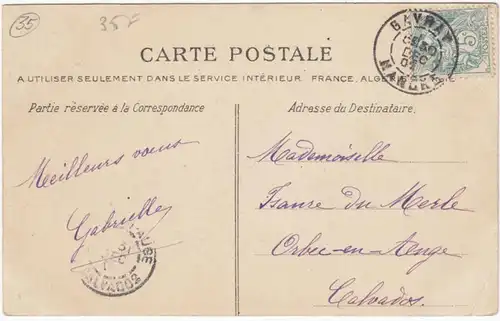 35
35F
CARTE POSTALE
A UTILISER SEULEMENT DANS LE SERVICE INTÉRIEUR. FRANCE, ALGÉ
Partie réservée à la Correspondance
Adresse du Destinataire.
GAVRAY
MANCHE
Meilleurs vœux
Gabrielle
Mademoiselle
Isaure du Merle
Orbec-en-Auge
Calvados.
AUGE
CALVADOS